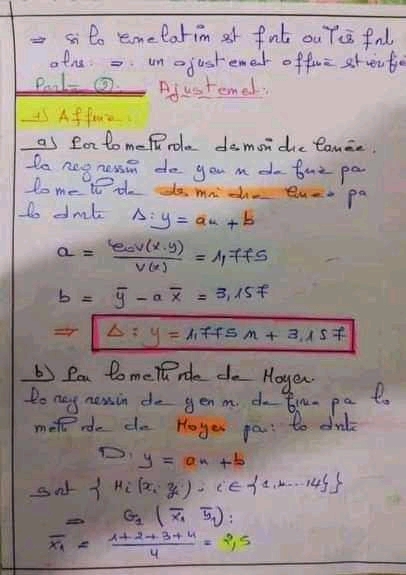 ⇒ si la corrélation est forte ou Très forte
alors ⇒ un ajustement affine est vérifié
Partie ② Ajustement:
1) Affine:
a) Par la méthode des moindre carrée.
la regression de y en x définie par
la méthode des moindre carrée par
la droite Δ: y = ax + b
a = cov(x.y) / V(x) = 1,775
b = ȳ - a x̄ = 3,157
⇒ Δ: y = 1,775 x + 3,157
b) Par la méthode de Mayer.
la regression de y en x. définie par la
méthode de Mayer par: la droite
D: y = ax + b
soit { Mi (xi. yi). i ∈ {1, ... 14}}
⇒ G1 ( x̄1 ȳ1):
x̄1 = (1+2+3+4) / 4 = 2,5